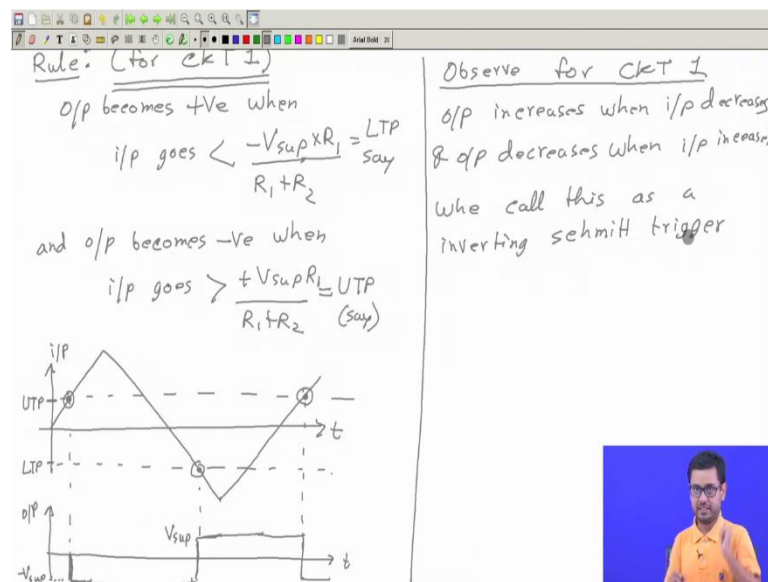 Arial Bold 20
Rule: (for CKT 1)
o/p becomes +ve when
i/p goes < -Vsup×R1 / R1+R2 = LTP say
and o/p becomes -ve when
i/p goes > +VsupR1 / R1+R2 = UTP (say)
i/p
UTP
t
LTP
o/p
Vsup
t
-Vsup
Observe for CKT 1
o/p increases when i/p decreases
& o/p decreases when i/p increases
whe call this as a
inverting schmitt trigger